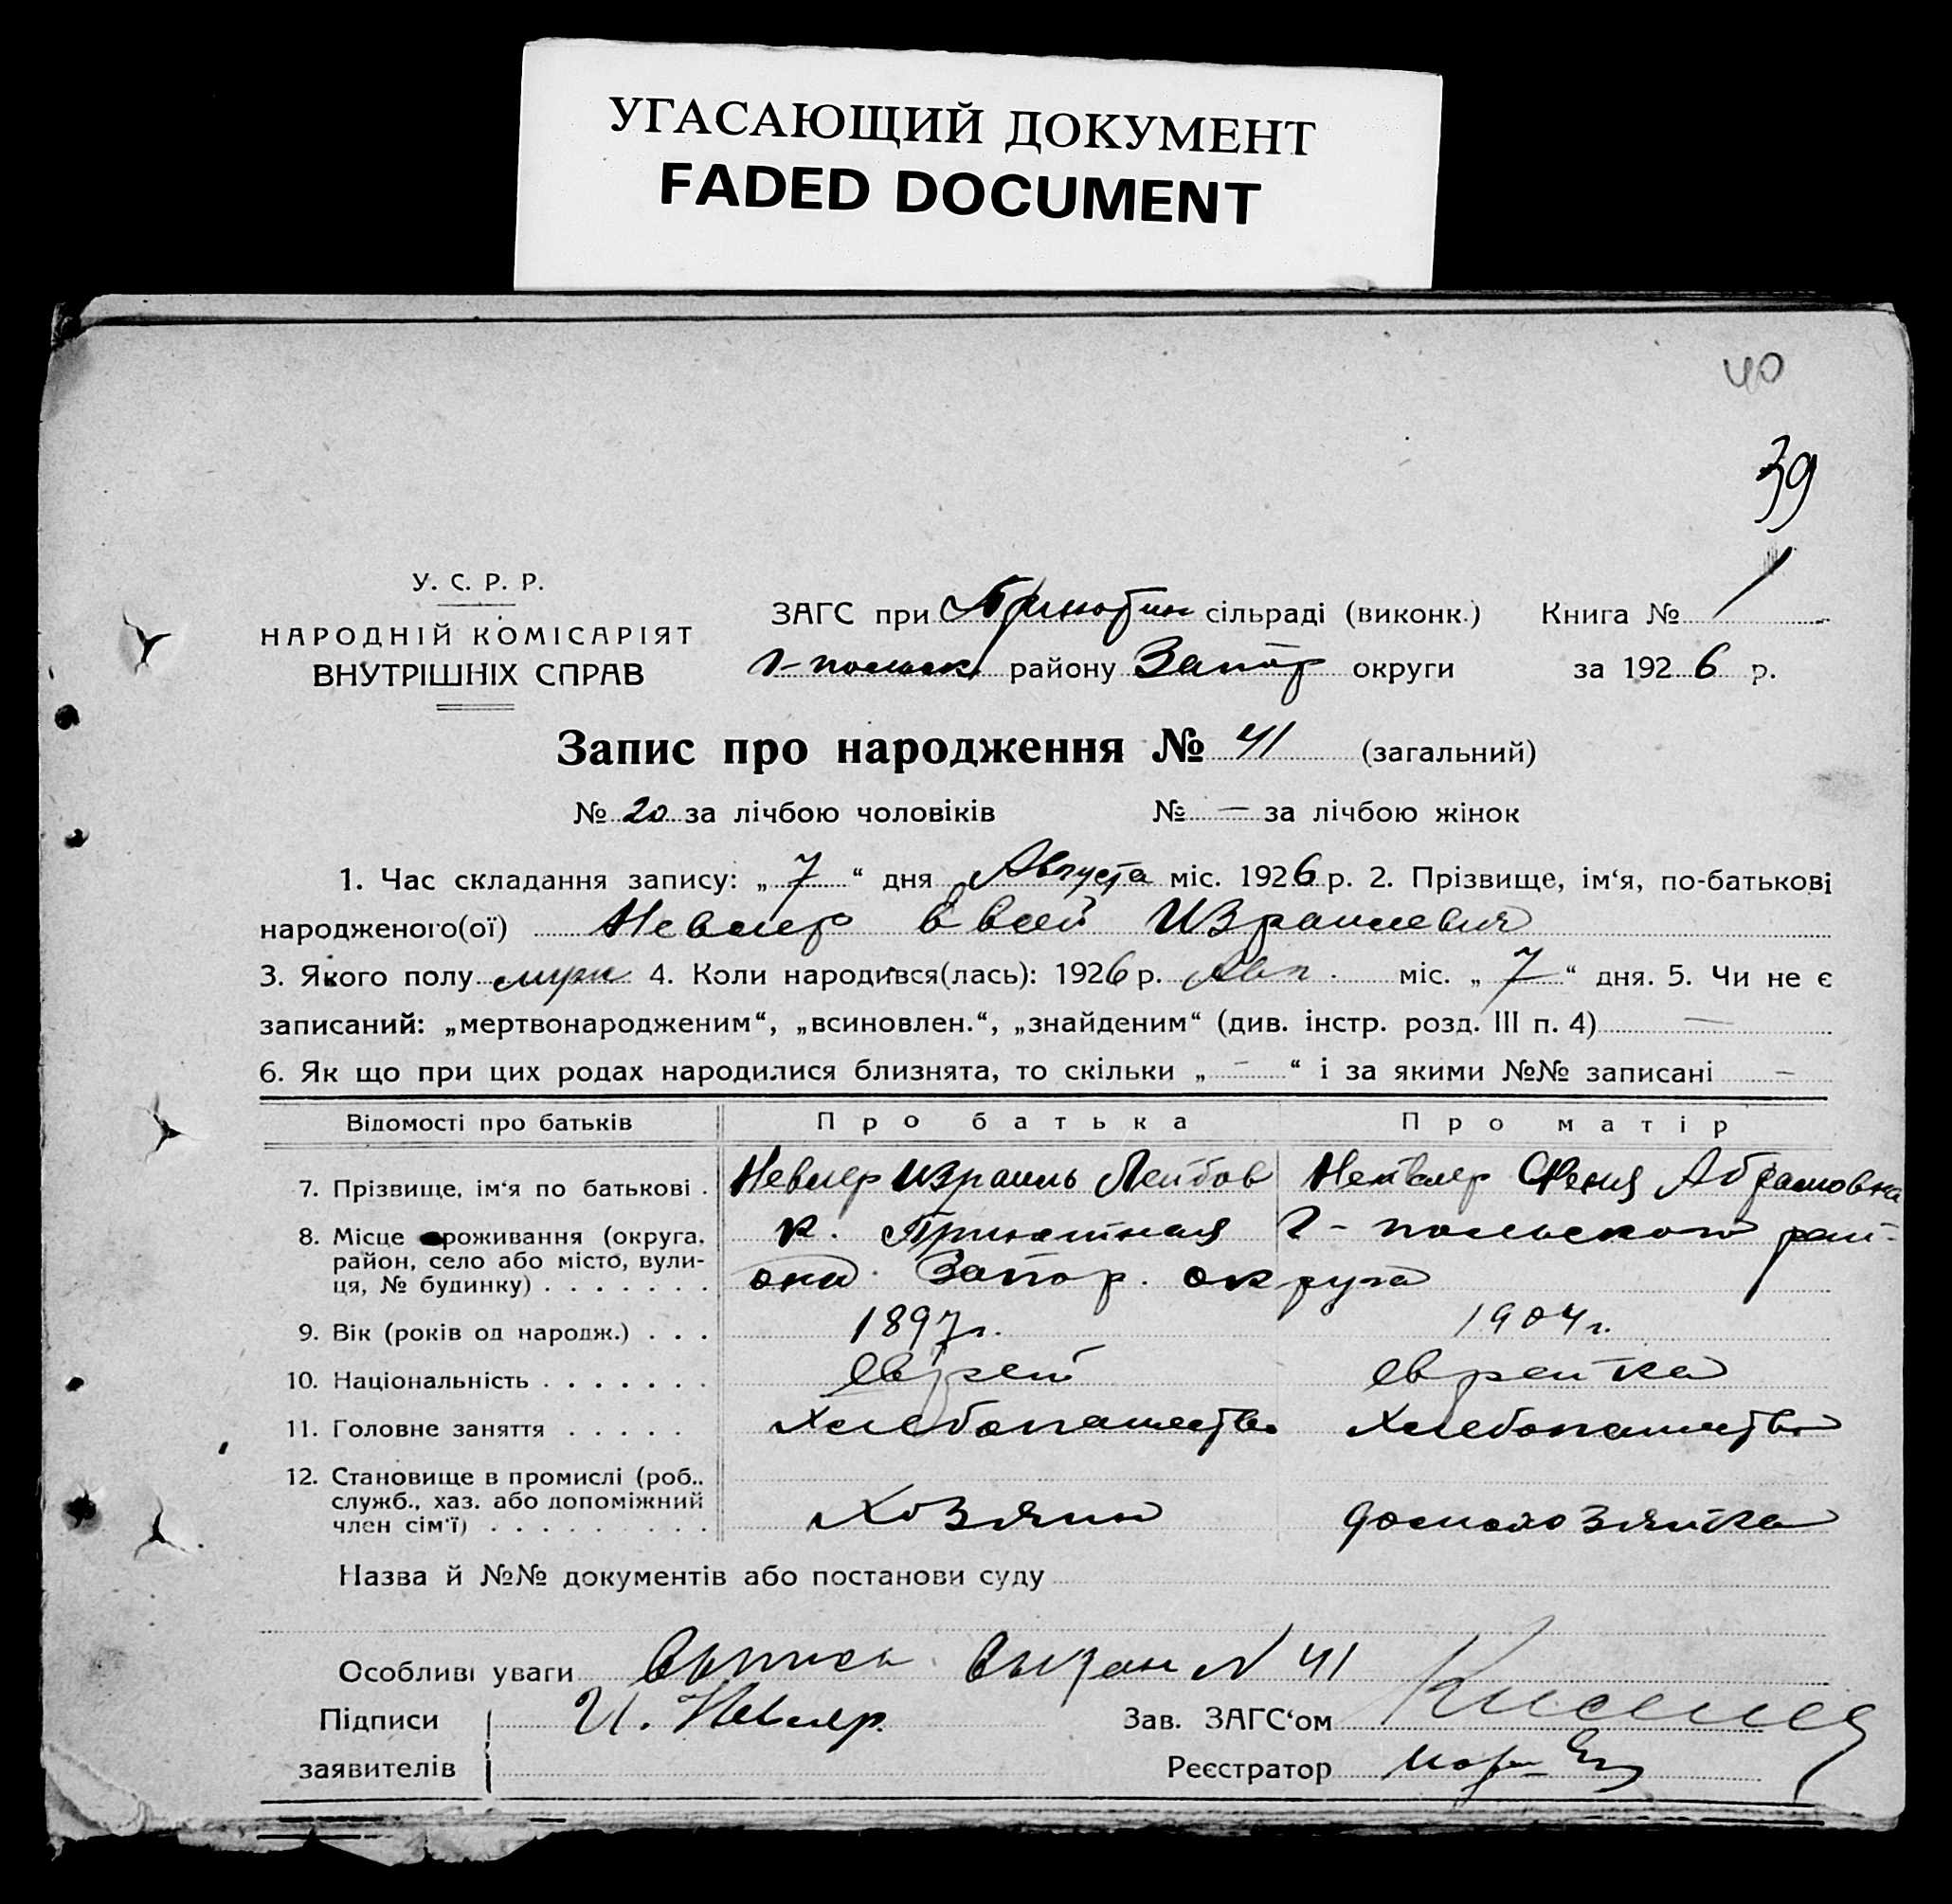 УГАСАЮЩИЙ ДОКУМЕНТ
FADED DOCUMENT
40
39
У. С. Р. Р.
НАРОДНІЙ КОМІСАРІЯТ
ВНУТРІШНІХ СПРАВ
ЗАГС при сільраді (виконк.) Книга № 1
г-польск району Запор округи за 1926 р.
Запис про народження № 41 (загальний)
№ 20 за лічбою чоловіків № — за лічбою жінок
1. Час складання запису: „ 7 “ дня Августа міс. 1926 р. 2. Прізвище, ім‘я, по-батькові
народженого(ої) Невлер Израилевич
3. Якого полу муж 4. Коли народився(лась): 1926 р. Авг. міс. „ 7 “ дня. 5. Чи не є
записаний: „мертвонародженим“, „всиновлен.“, „знайденим“ (див. інстр. розд. III п. 4) —
6. Як що при цих родах народилися близнята, то скільки „ — “ і за якими №№ записані —
Відомості про батьків Про батька Про матір
7. Прізвище, ім‘я по батькові . Невлер Израиль Лейбов Феня Абрамовна
8. Місце проживання (округа, район, село або місто, вули-ця, № будинку) . . . . . . .
к. Приютная г-польского рай-
она Запор. округа
9. Вік (років од народж.) . . . 1897 г. 1904 г.
10. Національність . . . . . . . еврей еврейка
11. Головне заняття . . . . . Хлебопашество Хлебопашество
12. Становище в промислі (роб., служб., хаз. або допоміжний член сім‘ї) . . . . . . . . . Хозяин домохозяйка
Назва й №№ документів або постанови суду
Особливі уваги Выпись выдан N 41
Підписи И. Невлер. Зав. ЗАГС‘ом
заявителів Реєстратор